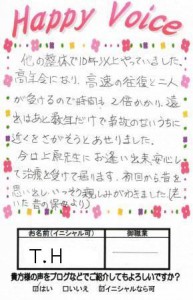 Happy Voice
他の整体で10年以上やっていました。
高年令になり、高速の往復と二人
が受けるので時間も2倍かかり、遠
出はあと数年だけで事故のないうちに
近くをさがそうとあせりました。
今日上原先生にお逢い出来、安心し
て治療を受けて居ります。前回から昔を
思い出し、いっそう親しみがわきました。(
た昔の
お名前(イニシャル可)
御職業
T.H
貴方様の声をブログなどでご紹介してもよろしいですか?
はい
いいえ
イニシャルなら可